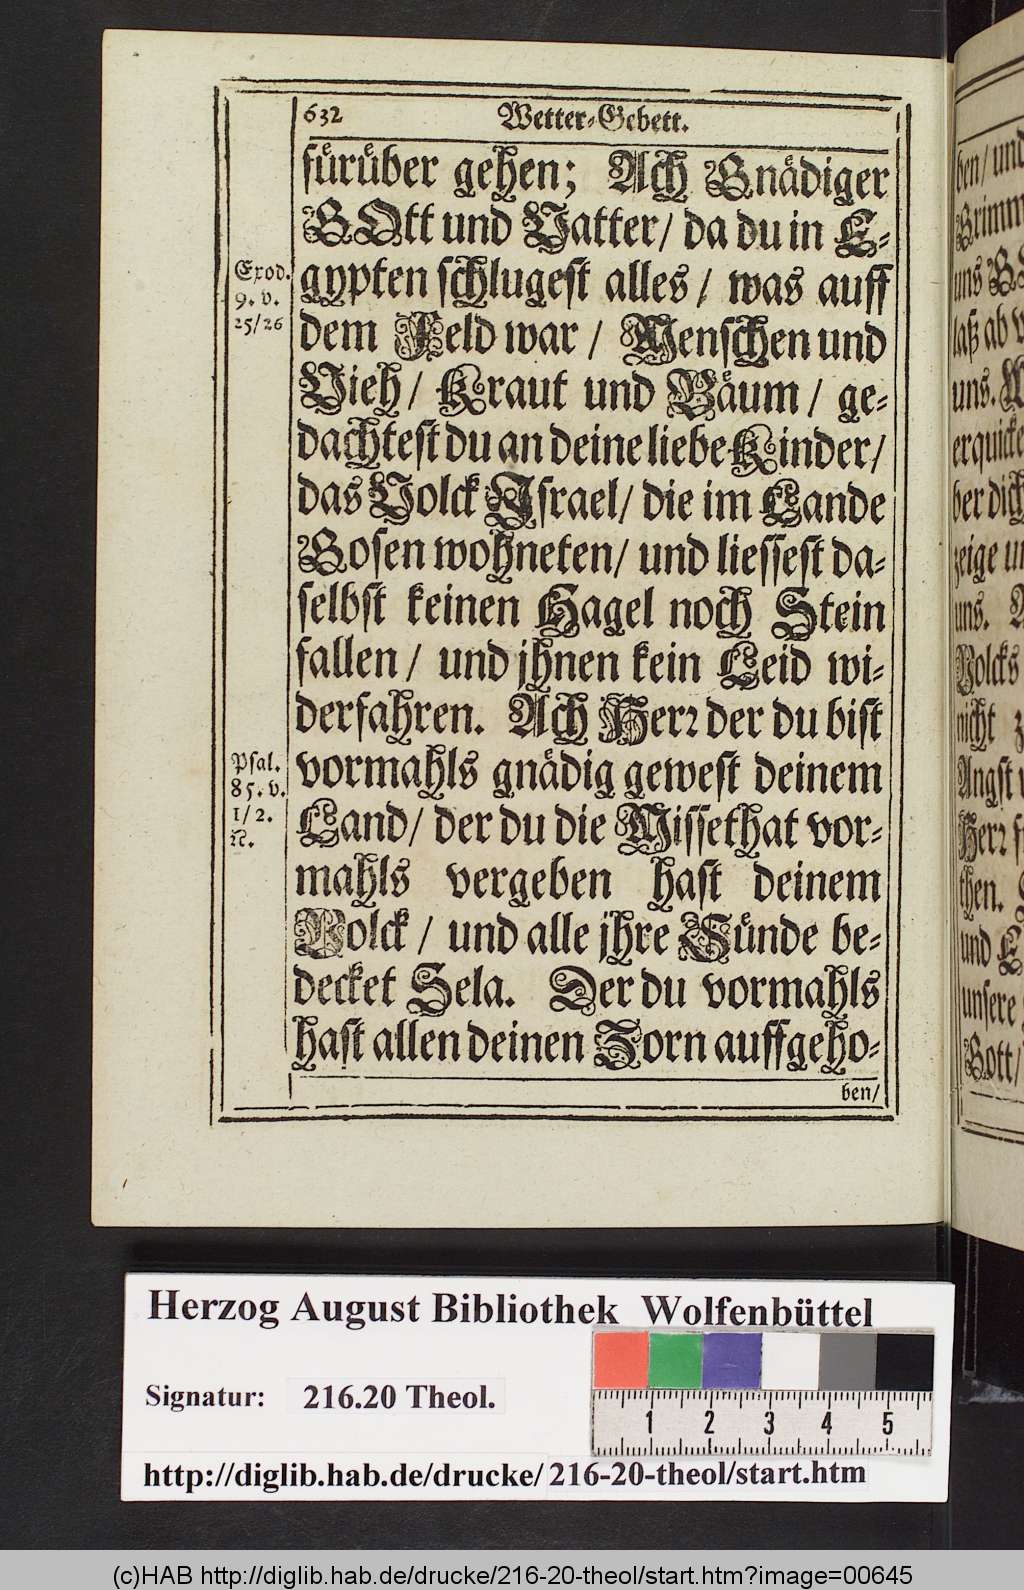 632 Wetter-Gebett.
fürüber gehen; Ach Gnädiger
GOtt und Vatter/ da du in E-
gypten schlugest alles/ was auff
dem Feld war/ Menschen und
Vieh/ Kraut und Bäum/ ge-
dachtest du an deine liebe Kinder/
das Volck Israel/ die im Lande
Gosen wohneten/ und liessest da-
selbst keinen Hagel noch Stein
fallen/ und jhnen kein Leid wi-
derfahren. Ach Herr der du bist
vormahls gnädig gewest deinem
Land/ der du die Missethat vor-
mahls vergeben hast deinem
Volck/ und alle jhre Sünde be-
decket Sela. Der du vormahls
hast allen deinen Zorn auffgeho-
ben/
Exod.
9. v.
25/26
Psal.
85. v.
1/2.
ꝛc.
ben/ und
Grimm
uns
laß ab
uns.
erquicke
ber dich
zeige
uns.
Volcks
nicht
Angst
Herr
then.
und
unsere
Gott/
Herzog August Bibliothek Wolfenbüttel
Signatur: 216.20 Theol.
1 2 3 4 5
http://diglib.hab.de/drucke/216-20-theol/start.htm
(c)HAB http://diglib.hab.de/drucke/216-20-theol/start.htm?image=00645